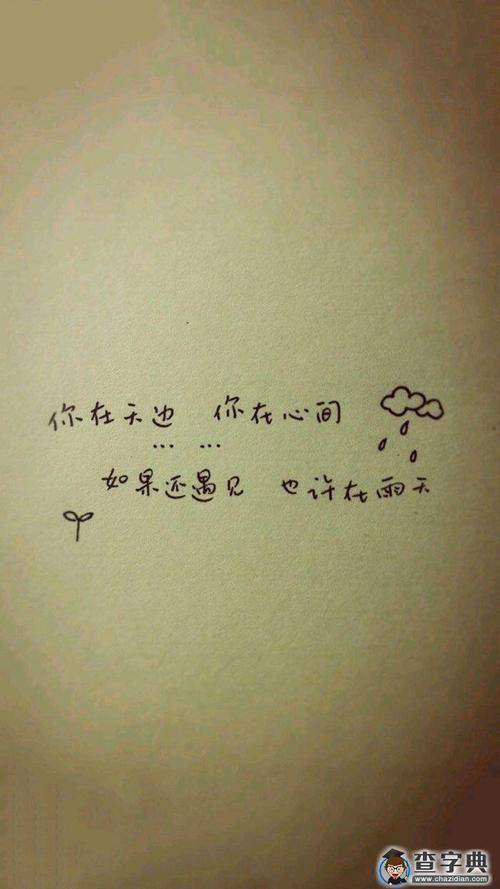 你在天边 你在心间
... ...
如果还遇见 也许在雨天
查字典
www.chazidian.com